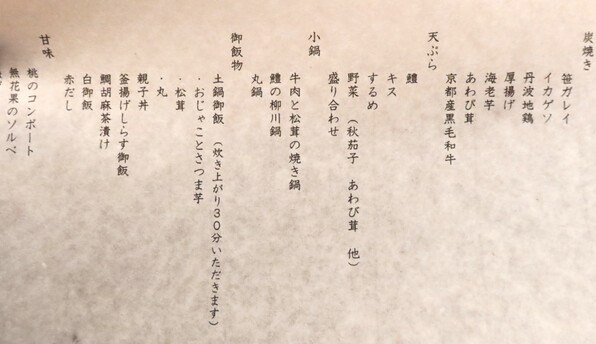 炭焼き
笹ガレイ
イカゲソ
丹波地鶏
厚揚げ
海老芋
あわび茸
京都産黒毛和牛
天ぷら
鱧
キス
するめ
野菜 (秋茄子 あわび茸 他)
盛り合わせ
小鍋
牛肉と松茸の焼き鍋
鱧の柳川鍋
丸鍋
御飯物
土鍋御飯 (炊き上がり30分いただきます)
・おじゃことさつま芋
・松茸
・丸
親子丼
釜揚げしらす御飯
鯛胡麻茶漬け
白御飯
赤だし
甘味
桃のコンポート
無花果のソルベ